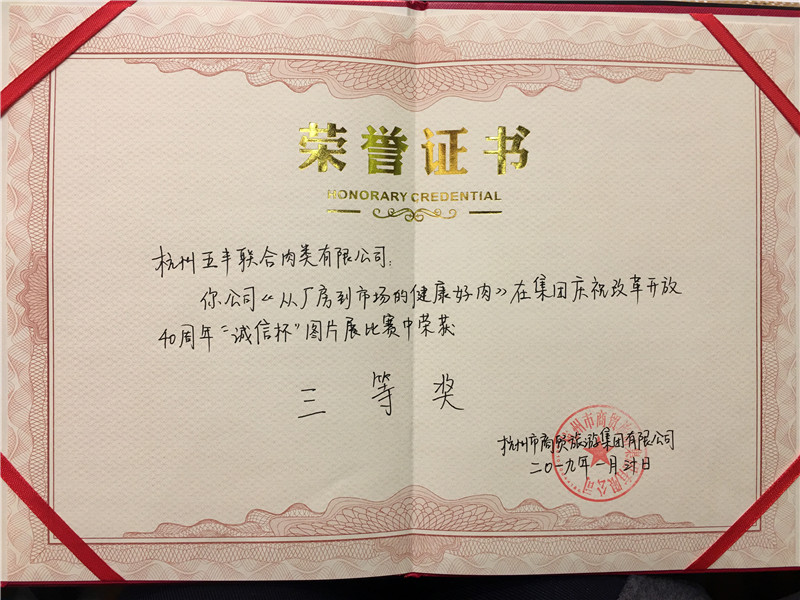 荣誉证书
HONORARY CREDENTIAL
杭州五丰联合肉类有限公司:
你公司《从厂房到市场的健康好肉》在集团庆祝改革开放
40周年"诚信杯"图片展比赛中荣获
三等奖
杭州市商贸旅游集团有限公司
二〇一九年一月廿日